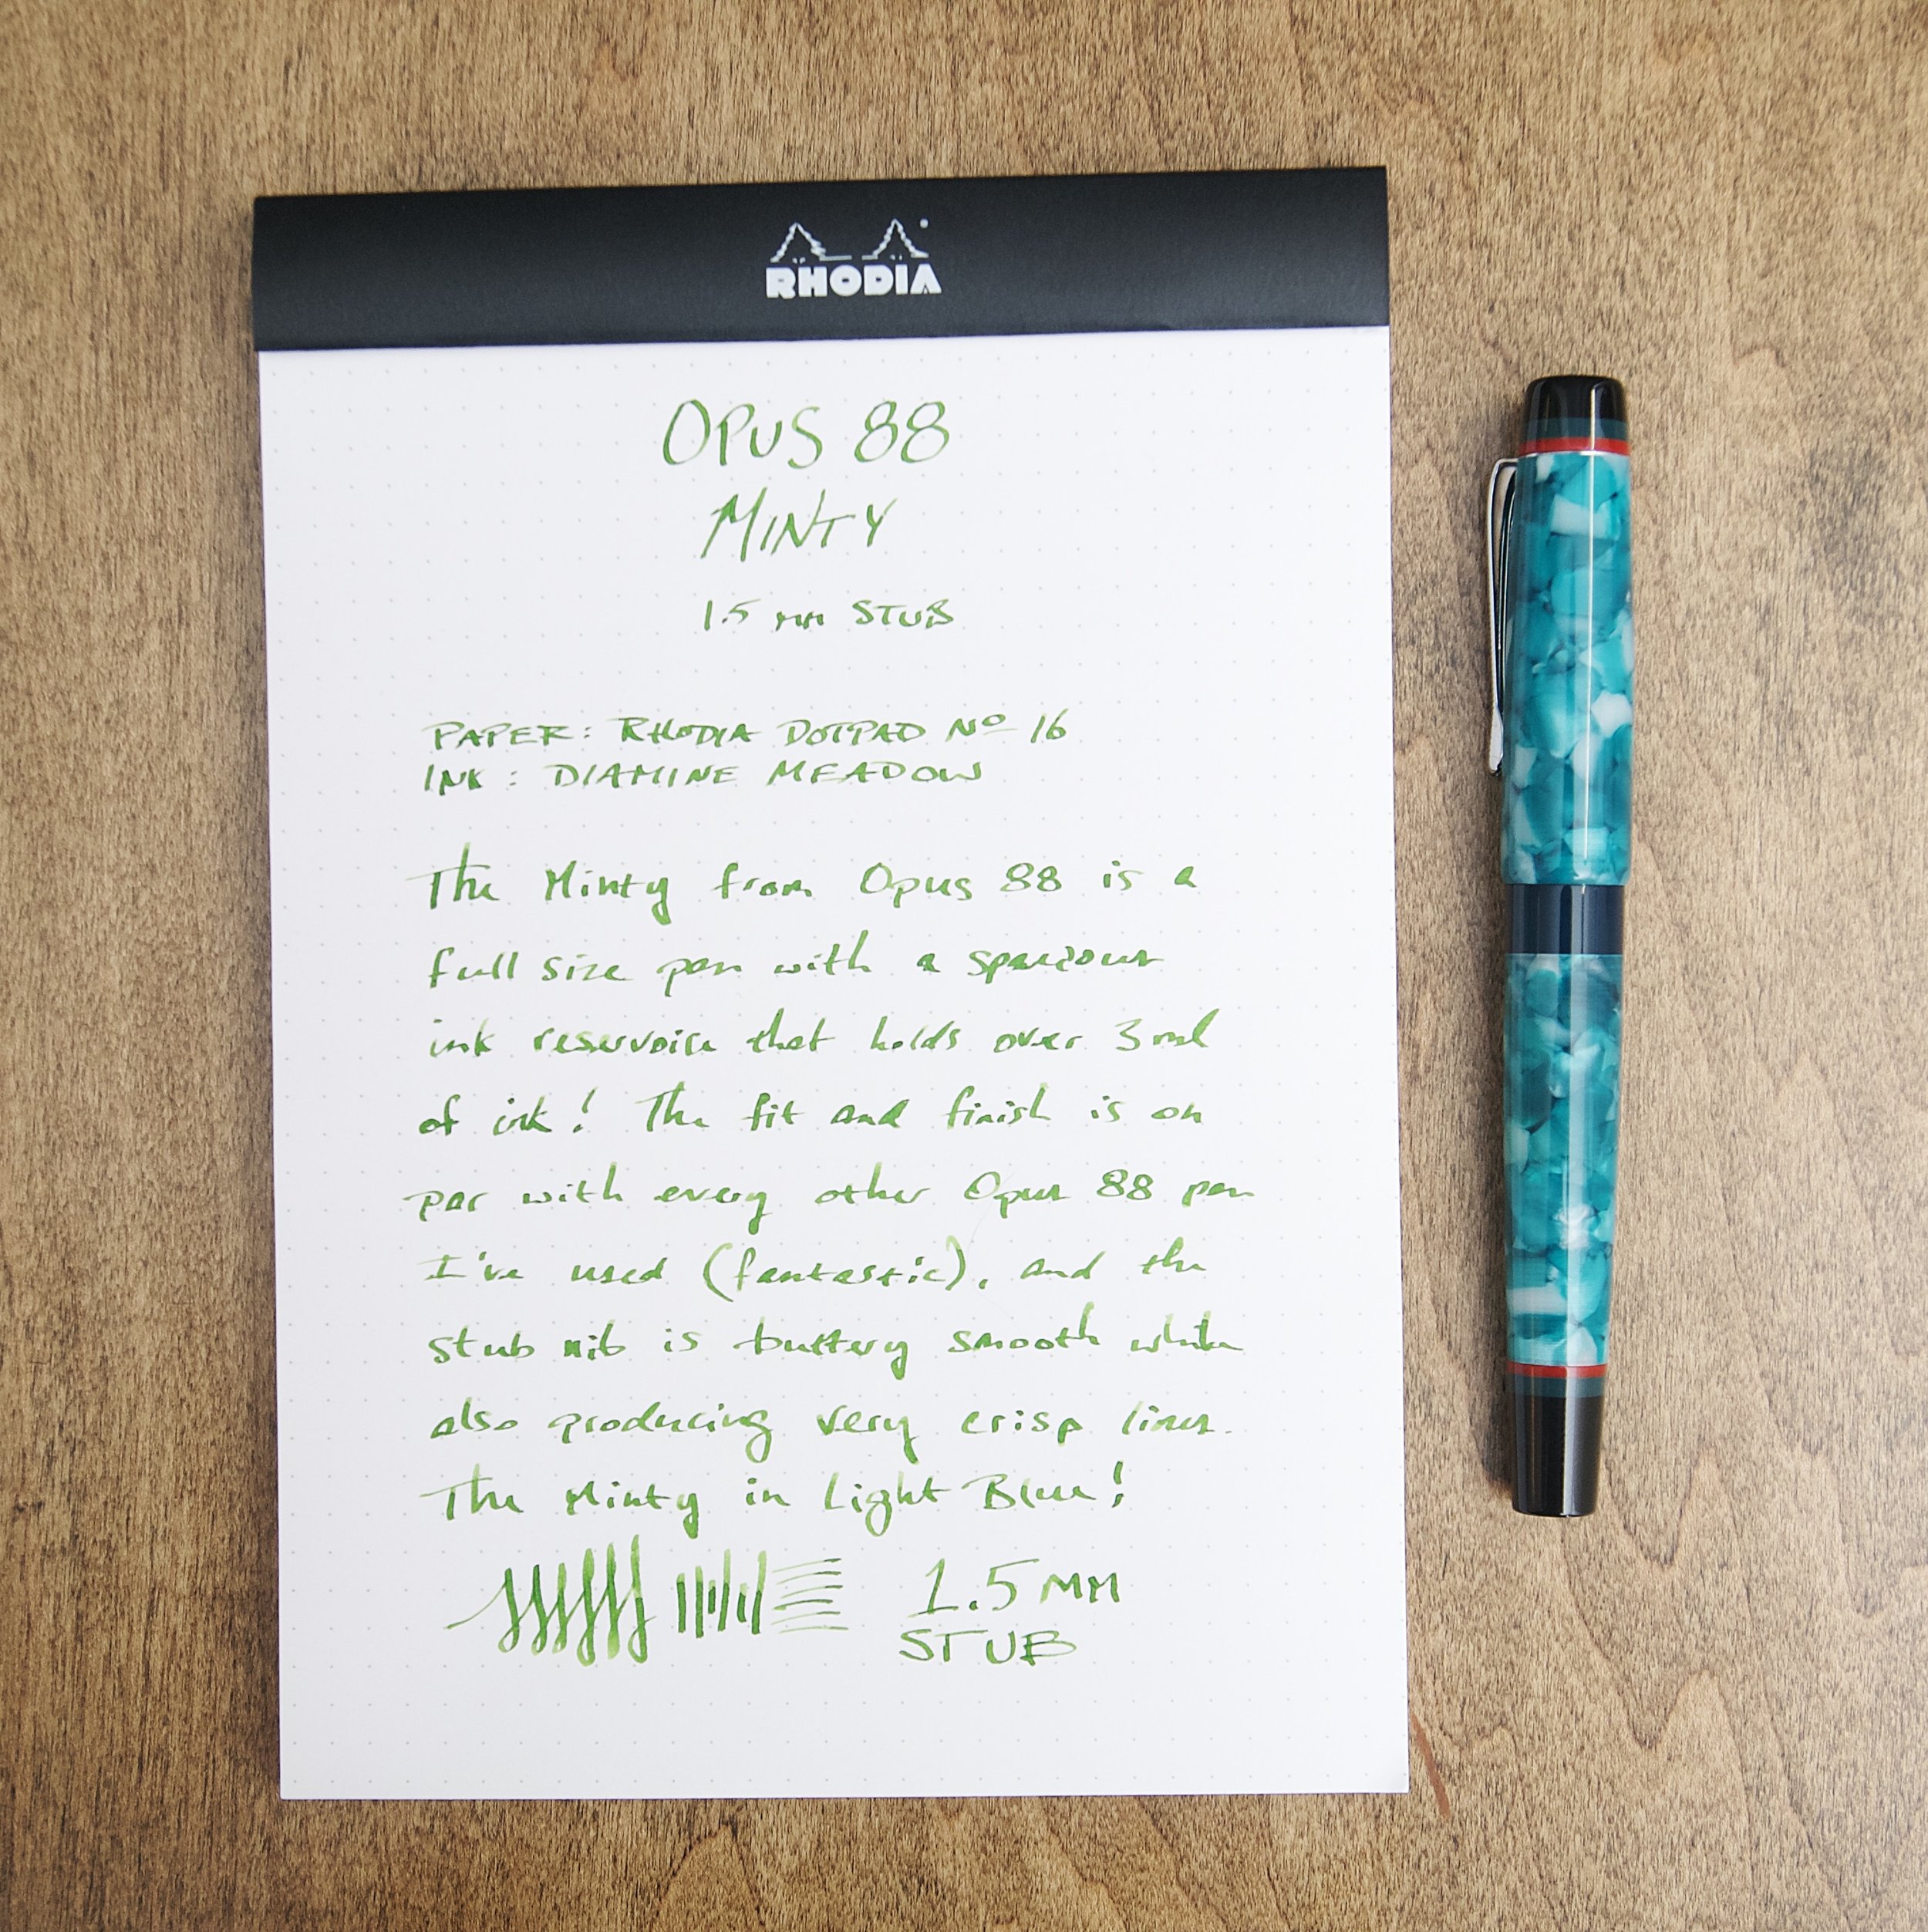 RHODIA
OPUS 88
MINTY
1.5 mm STUB
PAPER: RHODIA DOTPAD Nº 16
INK: DIAMINE MEADOW
The Minty from Opus 88 is a
full size pen with a spacious
ink reservoire that holds over 3 ml
of ink! The fit and finish is on
par with every other Opus 88 pen
I've used (fantastic), and the
stub nib is buttery smooth while
also producing very crisp lines.
The Minty in Light Blue!
1.5 MM
STUB